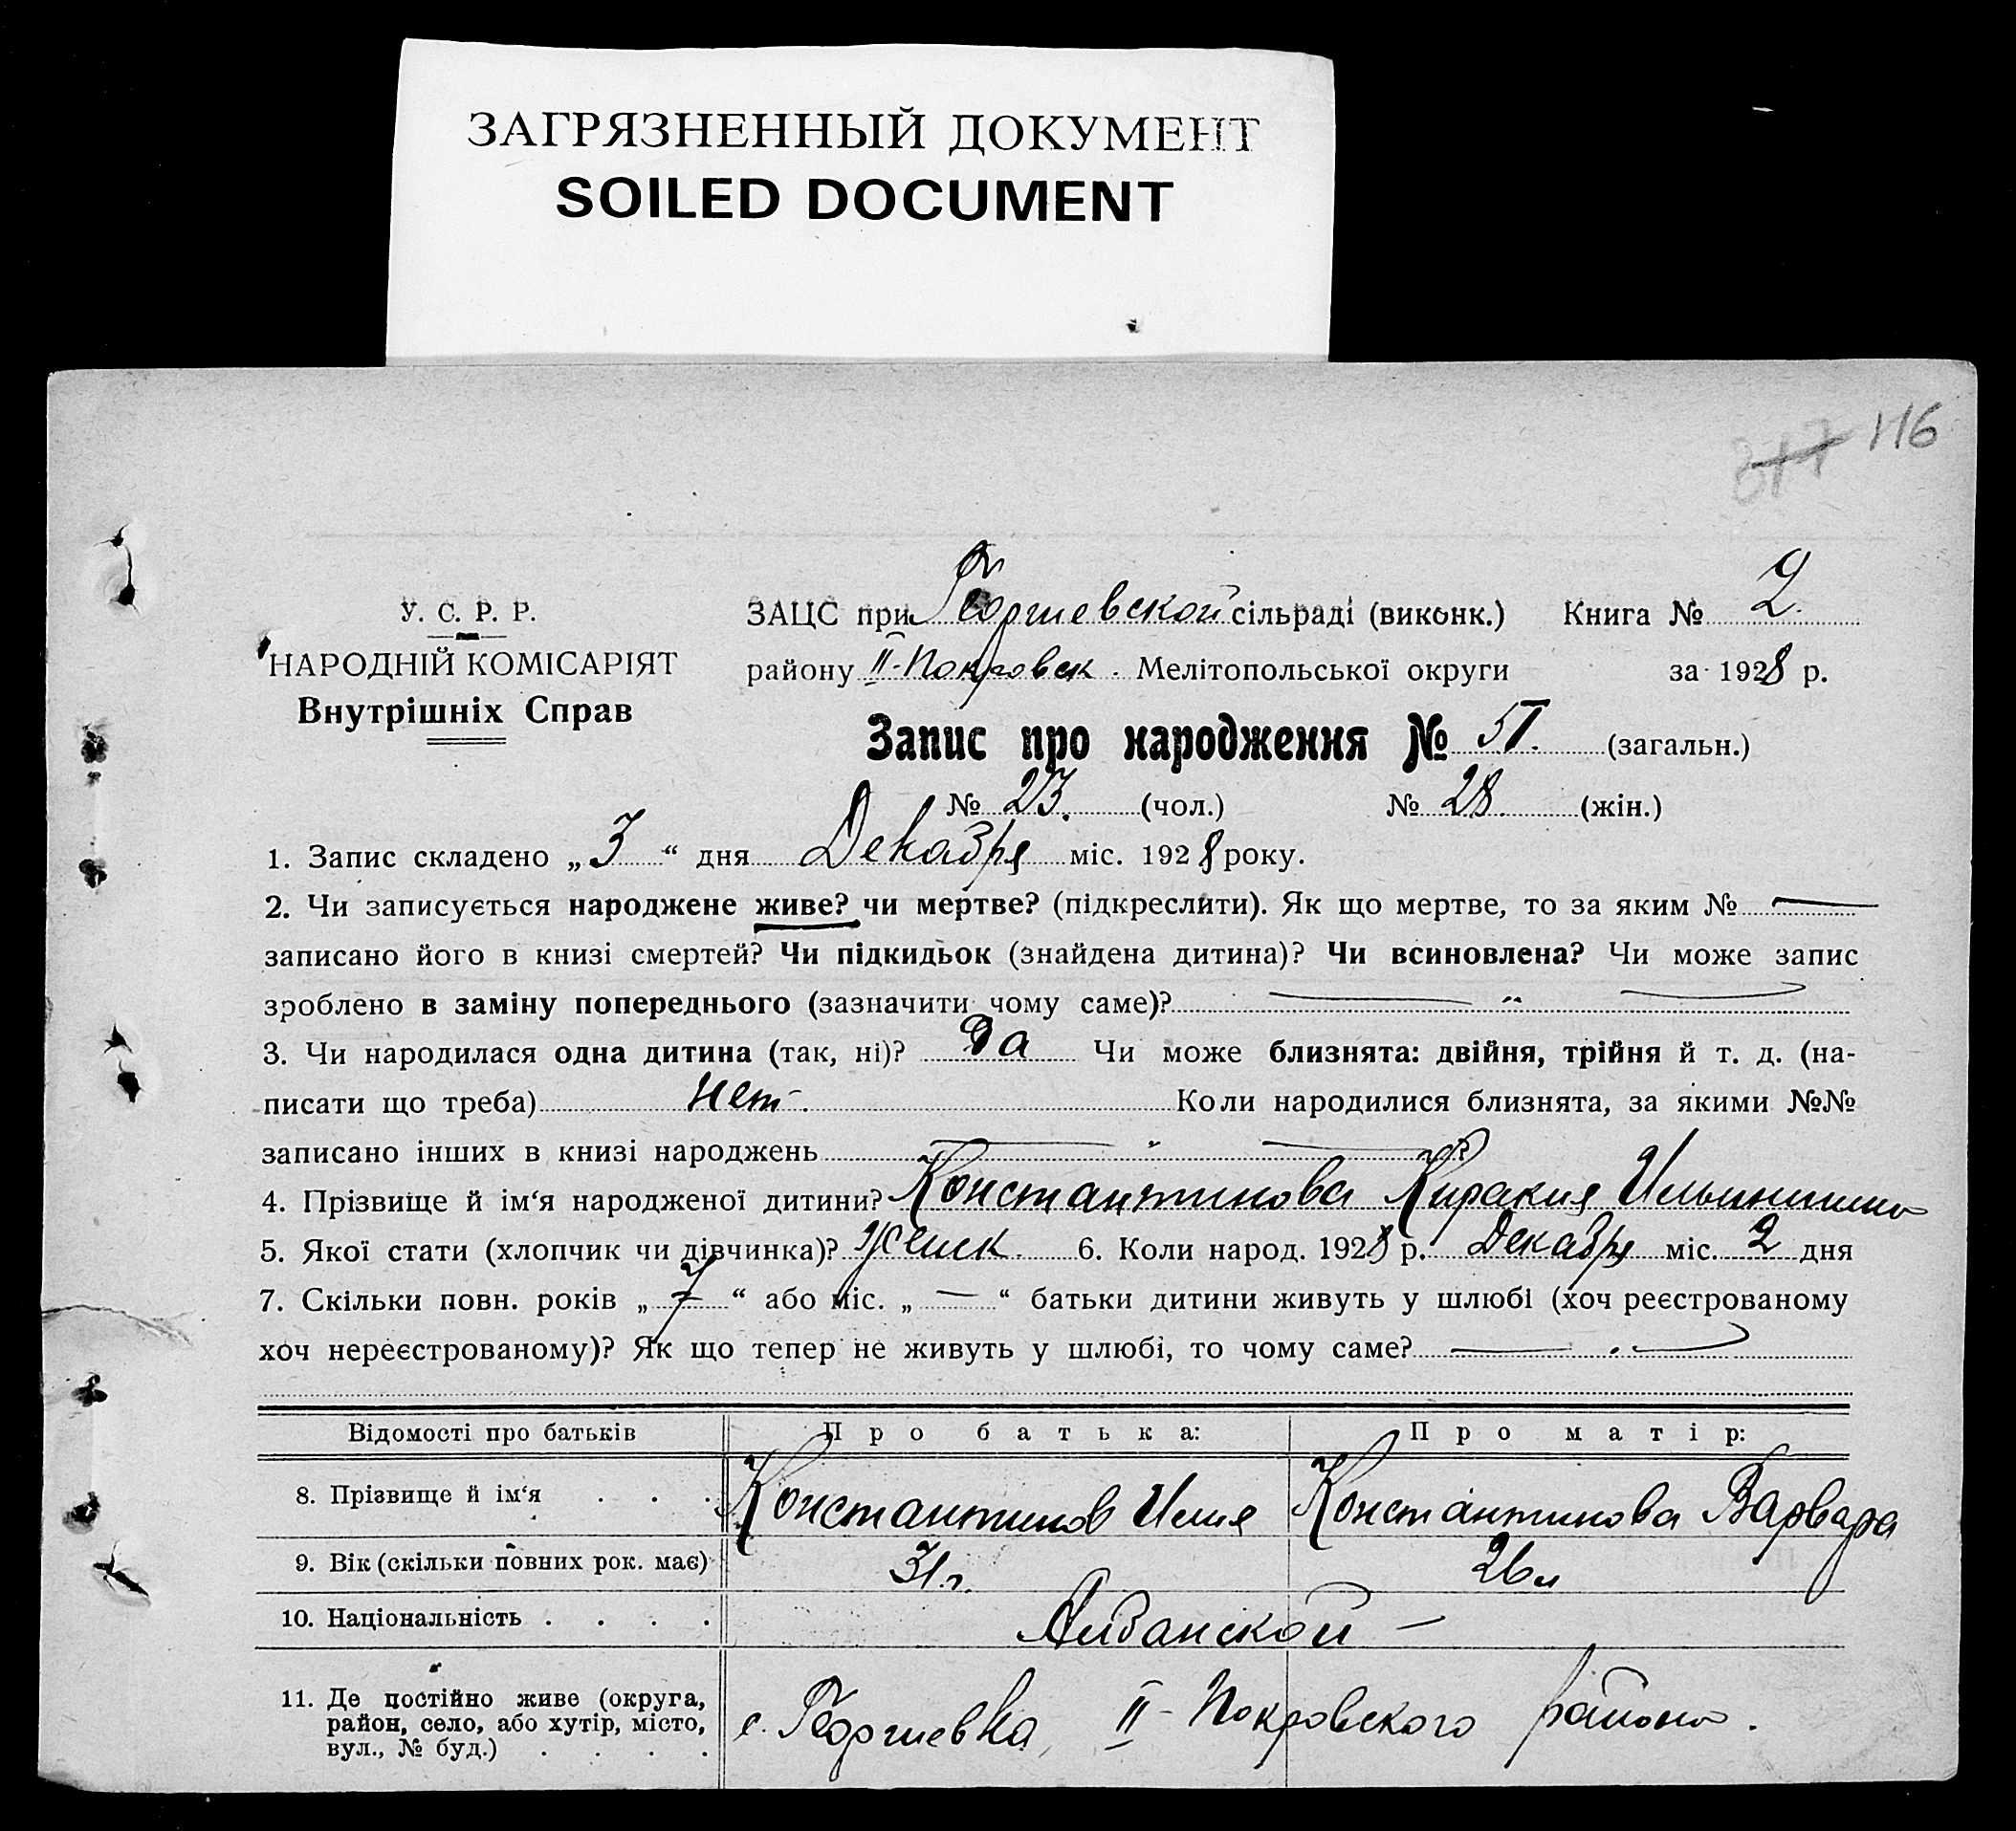 ЗАГРЯЗНЕННЫЙ ДОКУМЕНТ
SOILED DOCUMENT
377 116
У. С. Р. Р.
НАРОДНІЙ КОМІСАРІЯТ
Внутрішніх Справ
ЗАЦС при Георгиевской сільраді (виконк.) Книга № 2.
району II-Покровск. Мелітопольської округи за 1928 р.
Запис про народження № 51. (загальн.)
№ 23. (чол.) № 28. (жін.)
1. Запис складено „3“ дня Декабря міс. 1928 року.
2. Чи записується народжене живе? чи мертве? (підкреслити). Як що мертве, то за яким № —
записано його в книзі смертей? Чи підкидьок (знайдена дитина)? Чи всиновлена? Чи може запис
зроблено в заміну попереднього (зазначити чому саме)? — „ —
3. Чи народилася одна дитина (так, ні)? Да Чи може близнята: двійня, трійня й т. д. (на-
писати що треба) нет. Коли народилися близнята, за якими №№
записано інших в книзі народжень — „ —
4. Прізвище й ім‘я народженої дитини? Константинова Киракия Ильинишна
5. Якої стати (хлопчик чи дівчинка)? Женск. 6. Коли народ. 1928 р. Декабря міс. 2 дня
7. Скільки повн. років „7“ або міс. „—“ батьки дитини живуть у шлюбі (хоч реєстрованому
хоч нереєстрованому)? Як що тепер не живуть у шлюбі, то чому саме? — „ —
Відомості про батьків Про батька: Про матір:
8. Прізвище й ім‘я . . . Константинов Илия Константинова Варвара
9. Вік (скільки повних рок. має) 31 г. 26 л
10. Національність . . . . Албанской —
11. Де постійно живе (округа,
район, село, або хутір, місто,
вул., № буд.) . . . .
с. Георгиевка, II-Покровского района.